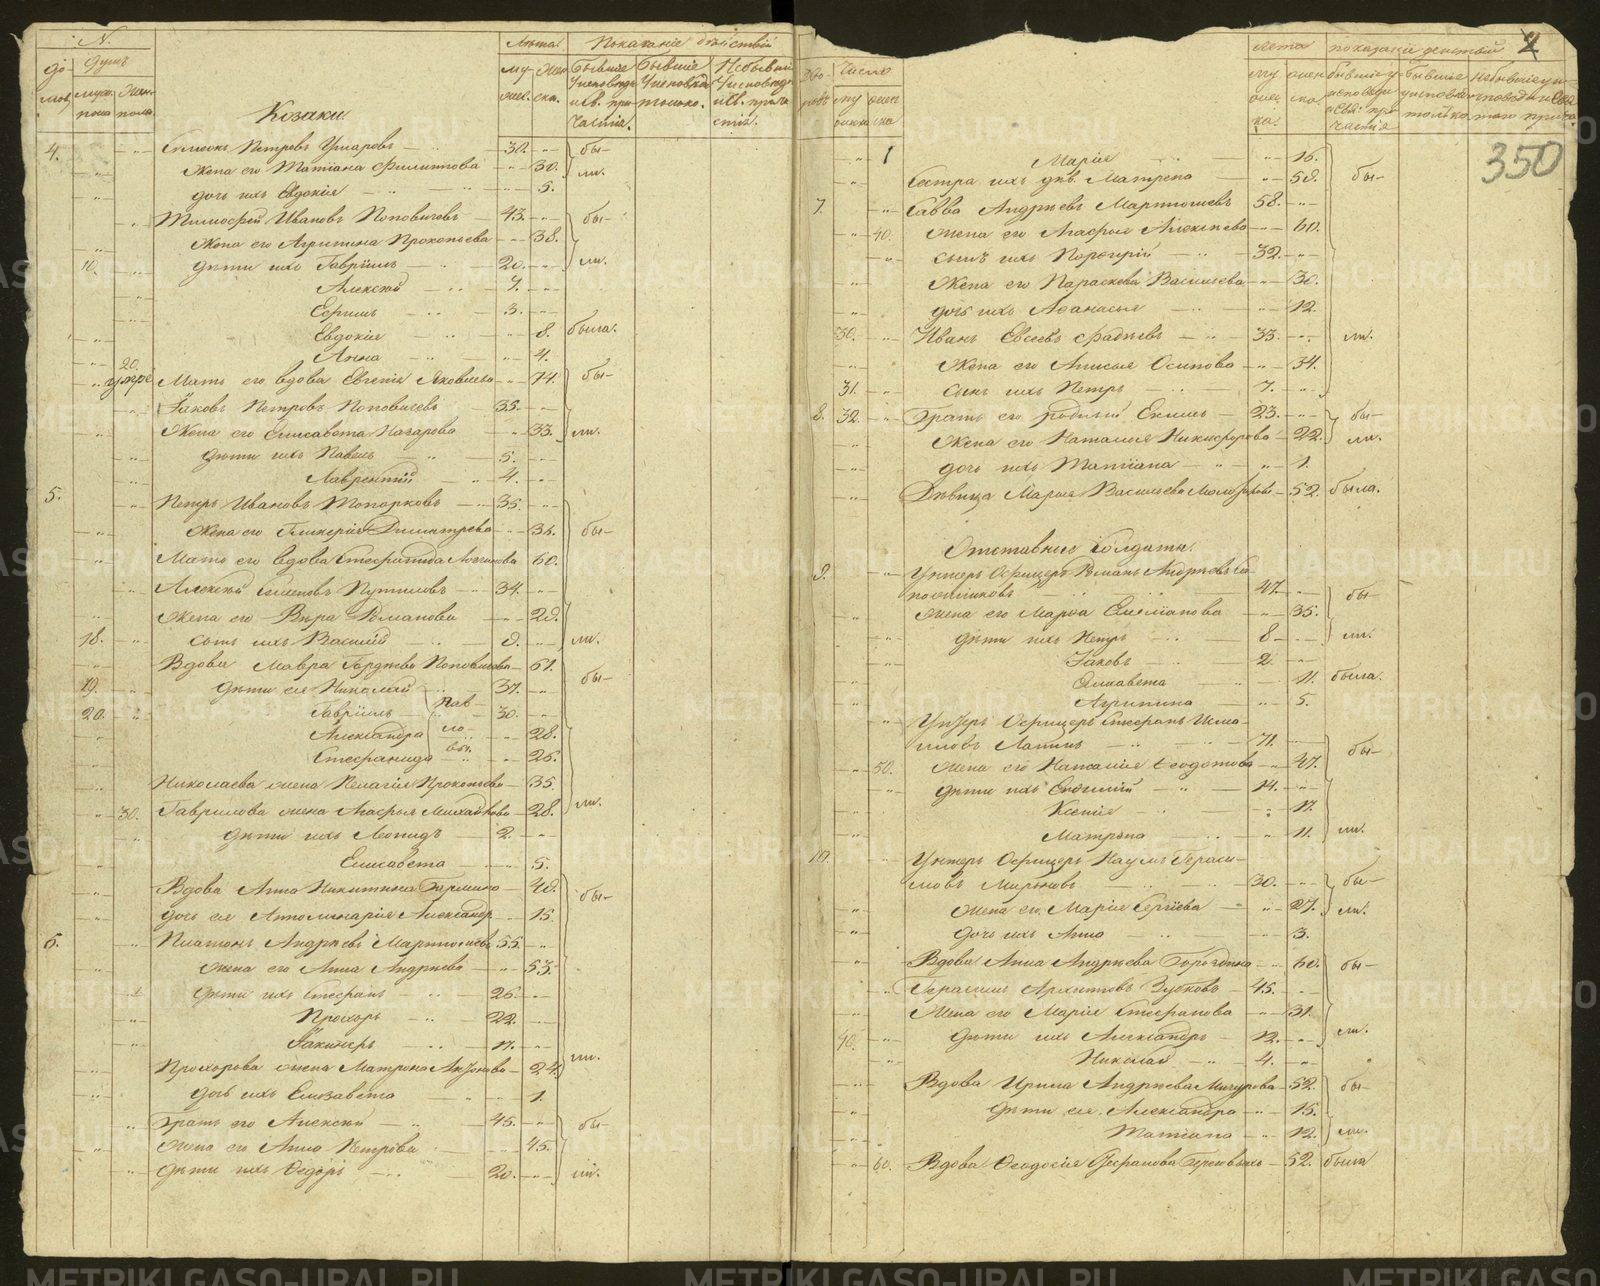 N.
Душъ
до-
мов.
муж.
пола
Жен.
пола
Козаки
Лѣта
му-
жес.
жен-
ска.
Показаніе дѣйствій
Бывшіе
Исповѣдъ
и Св. при-
частія.
Бывшіе
Исповѣди
только.
Небывш.
Исповѣди
и Св. прича-
стія.
4. Симеонъ Петровъ 30. бы-
Жена его Татіана Филиппова 30. ли.
дочь ихъ Евдокія 5.
Тимофей Ивановъ Поповичевъ 43. бы-
Жена его Агрипина Прокопьева 38.
10. дѣти ихъ Гавріилъ 20. ли.
Алексѣй 7.
Ефимъ 3.
Евдокія 8. была.
Анна 4.
20.
умре Мать его вдова Евгенія Яковлева 74. бы-
Іаковъ Петровъ Поповичевъ 35.
Жена его Елисавета Назарова 33. ли.
дѣти ихъ Павелъ 5.
Лаврентій 4.
5. Петръ Ивановъ Топорковъ 35.
Жена его Гликерія Димитрева 36. бы-
Мать его вдова Стефанида Логгинова 60.
Алексѣй Симеоновъ Путиловъ 34.
Жена его Вѣра Романова 28.
18. сынъ ихъ Василій 8. ли.
Вдова Мавра Поповичева 61.
19. дѣти ея Николай 37. бы-
20. Гавріилъ Пав- 30.
Александра ло- 28.
Стефанида вы. 26.
Николаева жена Пелагія Прокопьева 35.
30. Гаврилова жена Агафья Михайлова 28. ли.
дѣти ихъ Леонидъ 2.
Елисавета 5.
Вдова Анна Никитина 48. бы-
дочь ея Аполинарія Александр. 15.
6. Платонъ Андрѣевъ Мартышевъ 55.
жена его Анна Андрѣева 53.
дѣти ихъ Стефанъ 26.
Прохоръ 22.
17.
Прохорова жена Матрона 24. ли.
дочь ихъ Елизавета 1.
Братъ его Алексѣй 45. бы-
Жена его Анна Петрова 45.
Дѣти ихъ Ѳедоръ 20. ли.
4
350
Число
му-
жеска
жен-
ска
лета
му-
жес-
ка.
жен-
ска.
показаніе действій
бывшіе у
исповѣди
и св: при-
частія
бывшіе
исповѣди
только
1 Марія 16.
Сестра ихъ дѣв. Матрена 58. бы-
7. Савва Андрѣевъ Мартышевъ 58.
40. жена его Агафья Алексѣева 60.
сынъ ихъ Порфирій 32.
жена его Параскева Васильева 30.
дочь ихъ Афанасья 12.
30. Иванъ Евсеевъ 33. ли.
Жена его Анисья Осипова 34.
31. сынъ ихъ Петръ 7.
8. 32. Братъ его родный Екимъ 23. бы-
жена его Наталья Никифорова 22. ли.
дочь ихъ Татіана 1.
Дѣвица Марья Васильева 52. была.
Отставные Солдаты.
9. Унтеръ Офицеръ Романъ Андрѣевъ Са-
пожниковъ 47. бы-
жена его Марѳа Емельянова 35.
дѣти ихъ Петръ 8 ли.
Іаковъ 2.
Елисавета 11. была.
Агрипина 5.
Унтеръ Офицеръ Стефанъ Исма-
иловъ Лапинъ 71. бы-
50. жена его Наталія Ѳеодотова 47.
дѣти ихъ Евѳимій 14.
Ксенія 17.
Матрона 11. ли.
10. Унтеръ Офицеръ Наумъ Гераси-
мовъ 30. бы-
жена его Марія Сергіева 27. ли.
Дочь ихъ Анна 3.
Вдова Анна Андрѣева Бороздина 60. бы-
Герасимъ Архиповъ Зубковъ 45.
Жена его Марія Стефанова 31.
40. дѣти ихъ Александръ 12. ли.
Николай 4.
Вдова Ирина Андрѣева Мичурова 52. бы-
дѣти ея. Александра 15.
Татіана 12. ли.
60. Вдова Ѳеодосія Стефанова 52. была
METRIKI.GASO-URAL.RU